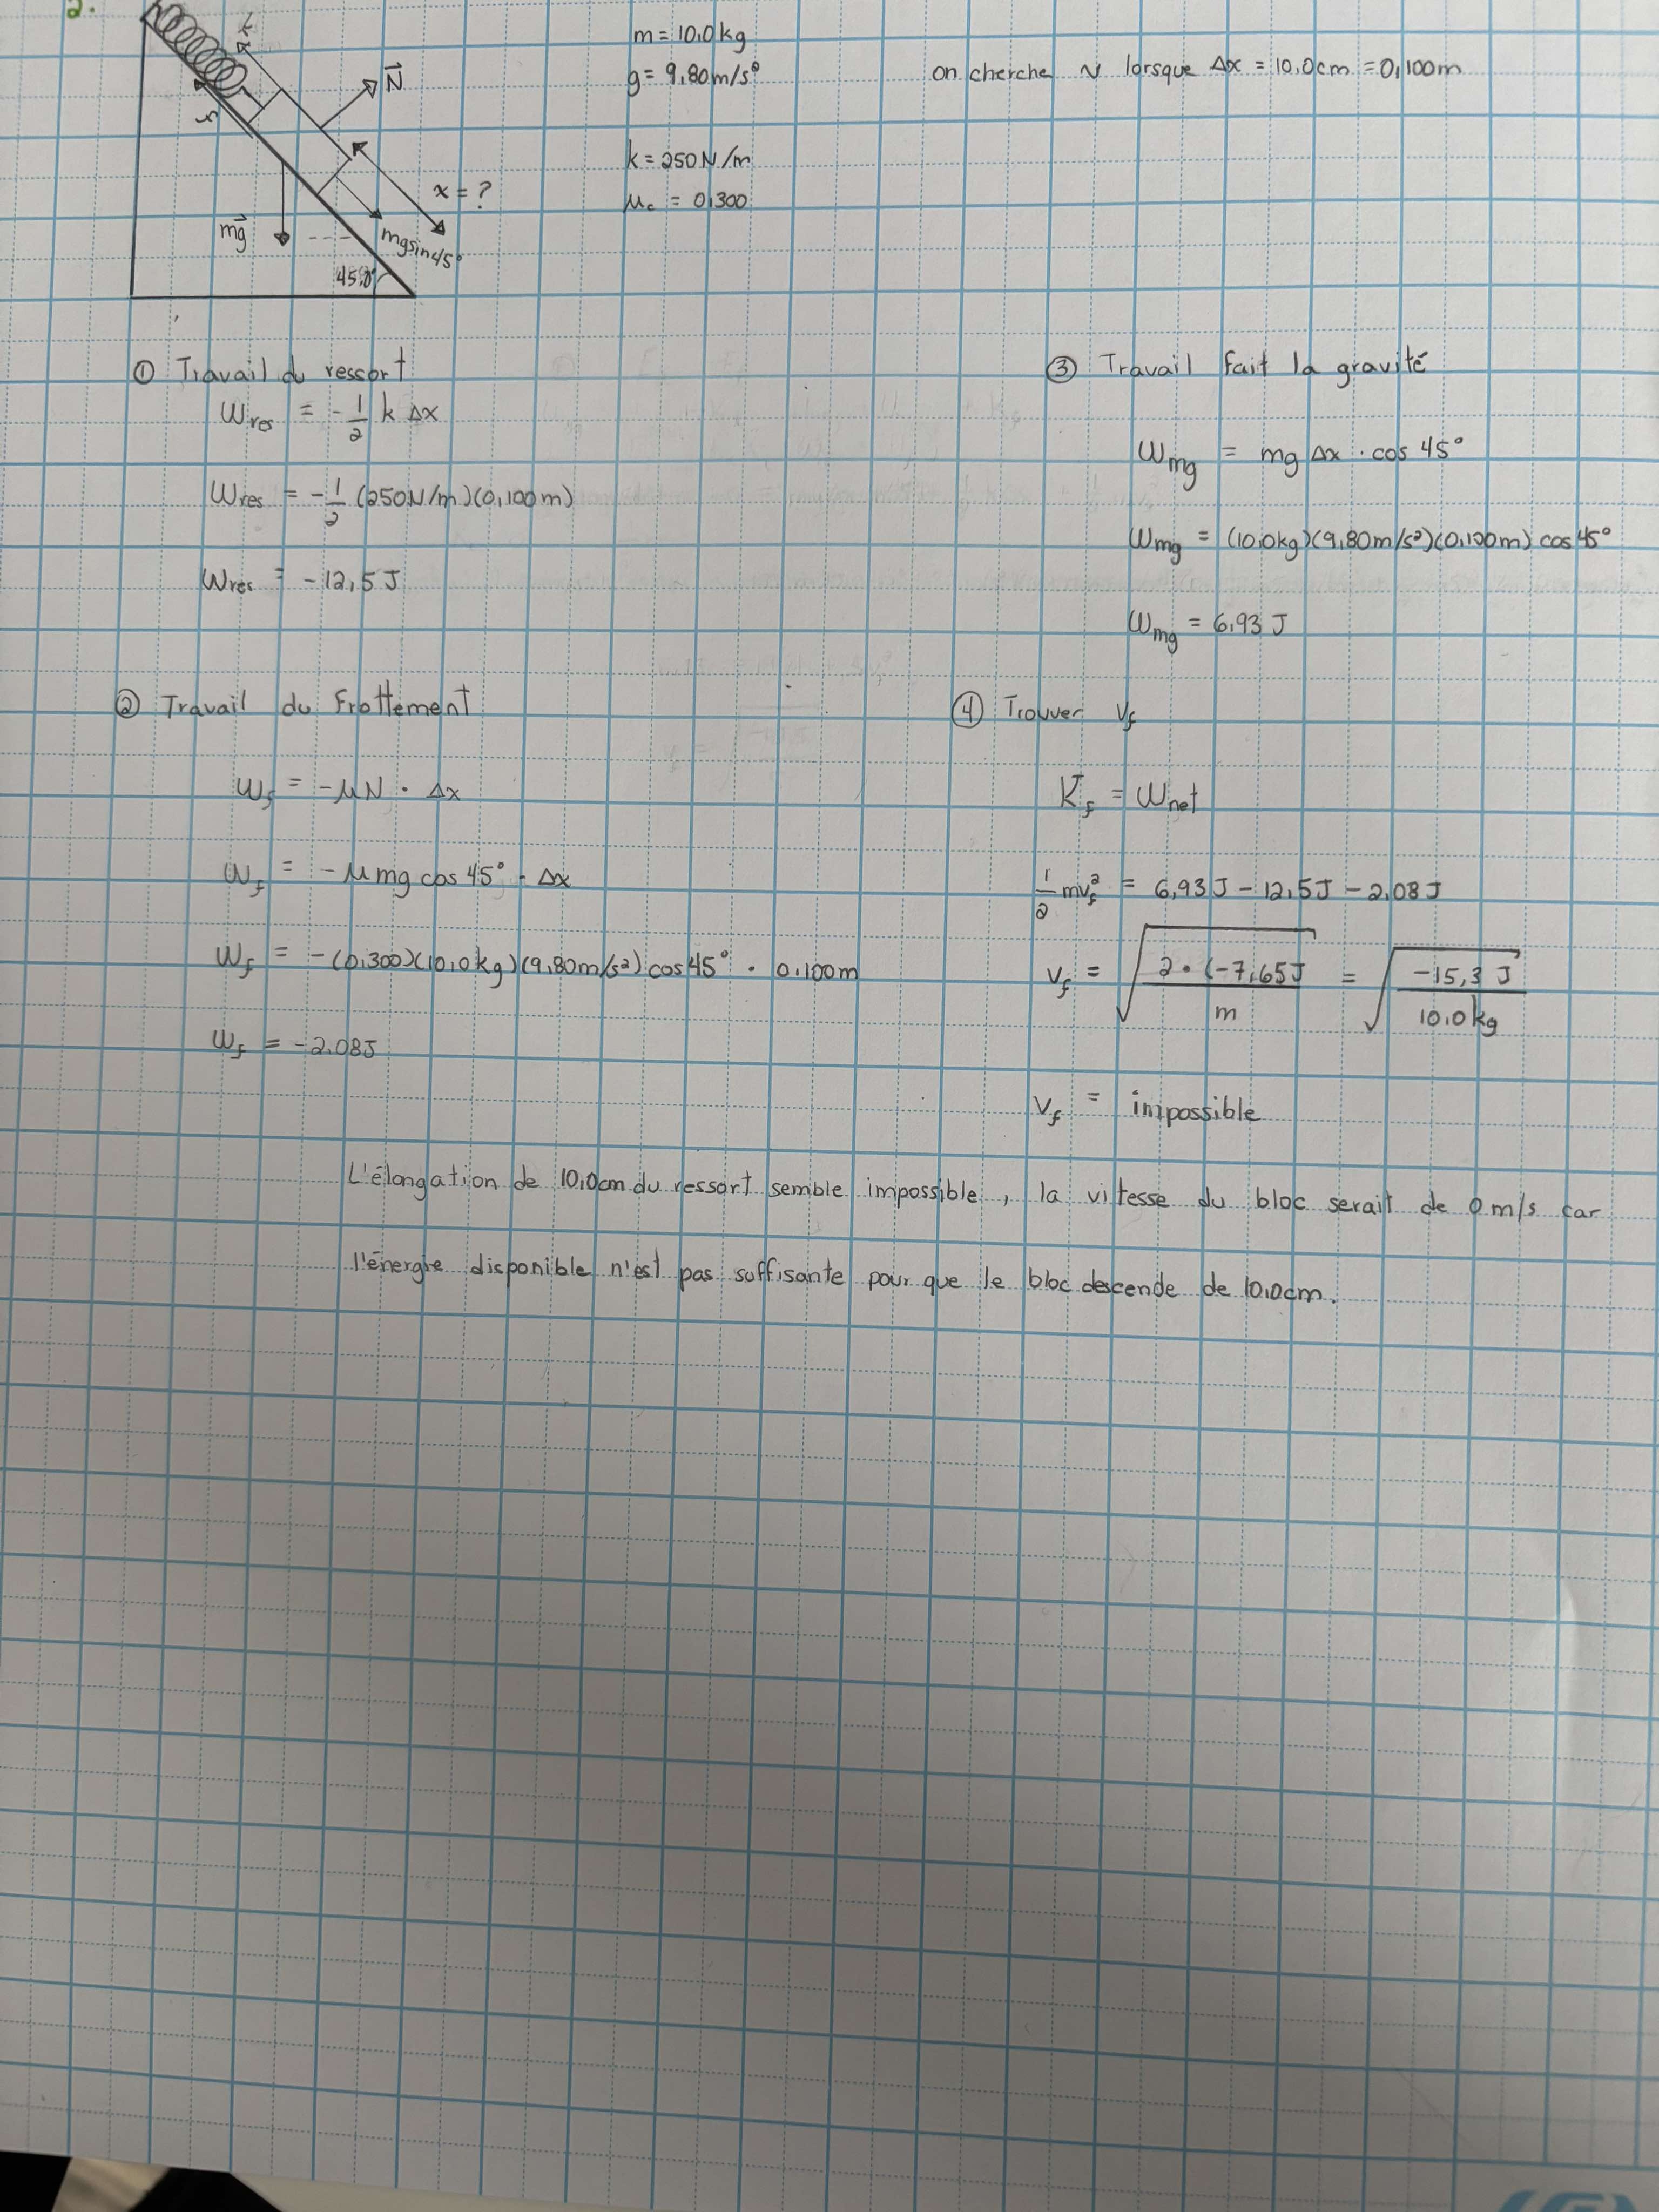 2.
kx
N
f
x = ?
mg
mgsin45°
45,0°
m = 10,0 kg
g = 9,80 m/s²
k = 250 N/m
μc = 0,300
on cherche v lorsque Δx = 10,0cm = 0,100m
① Travail du ressort
Wres = -1/2 k Δx
Wres = -1/2 (250N/m)(0,100m)
Wres = -12,5 J
② Travail du Frottement
Wf = -μN · Δx
Wf = -μmg cos 45° · Δx
Wf = -(0,300)(10,0kg)(9,80m/s²) cos 45° · 0,100m
Wf = -2,08J
③ Travail fait la gravité
Wmg = mg Δx · cos 45°
Wmg = (10,0kg)(9,80m/s²)(0,100m) cos 45°
Wmg = 6,93 J
④ Trouver vf
Kf = Wnet
1/2 mvf² = 6,93J - 12,5J - 2,08J
vf = √(2·(-7,65J / m) = √(-15,3 J / 10,0kg)
vf = impossible
L'élongation de 10,0cm du ressort semble impossible, la vitesse du bloc serait de 0 m/s car
l'énergie disponible n'est pas suffisante pour que le bloc descende de 10,0cm.